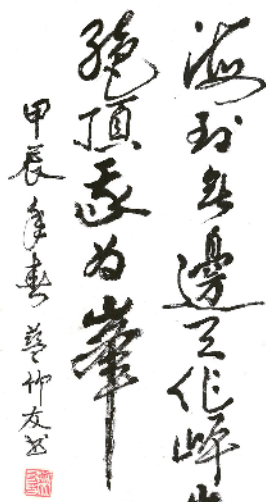 海到無邊天作岸
絶頂我為峯
甲辰年春仲友书